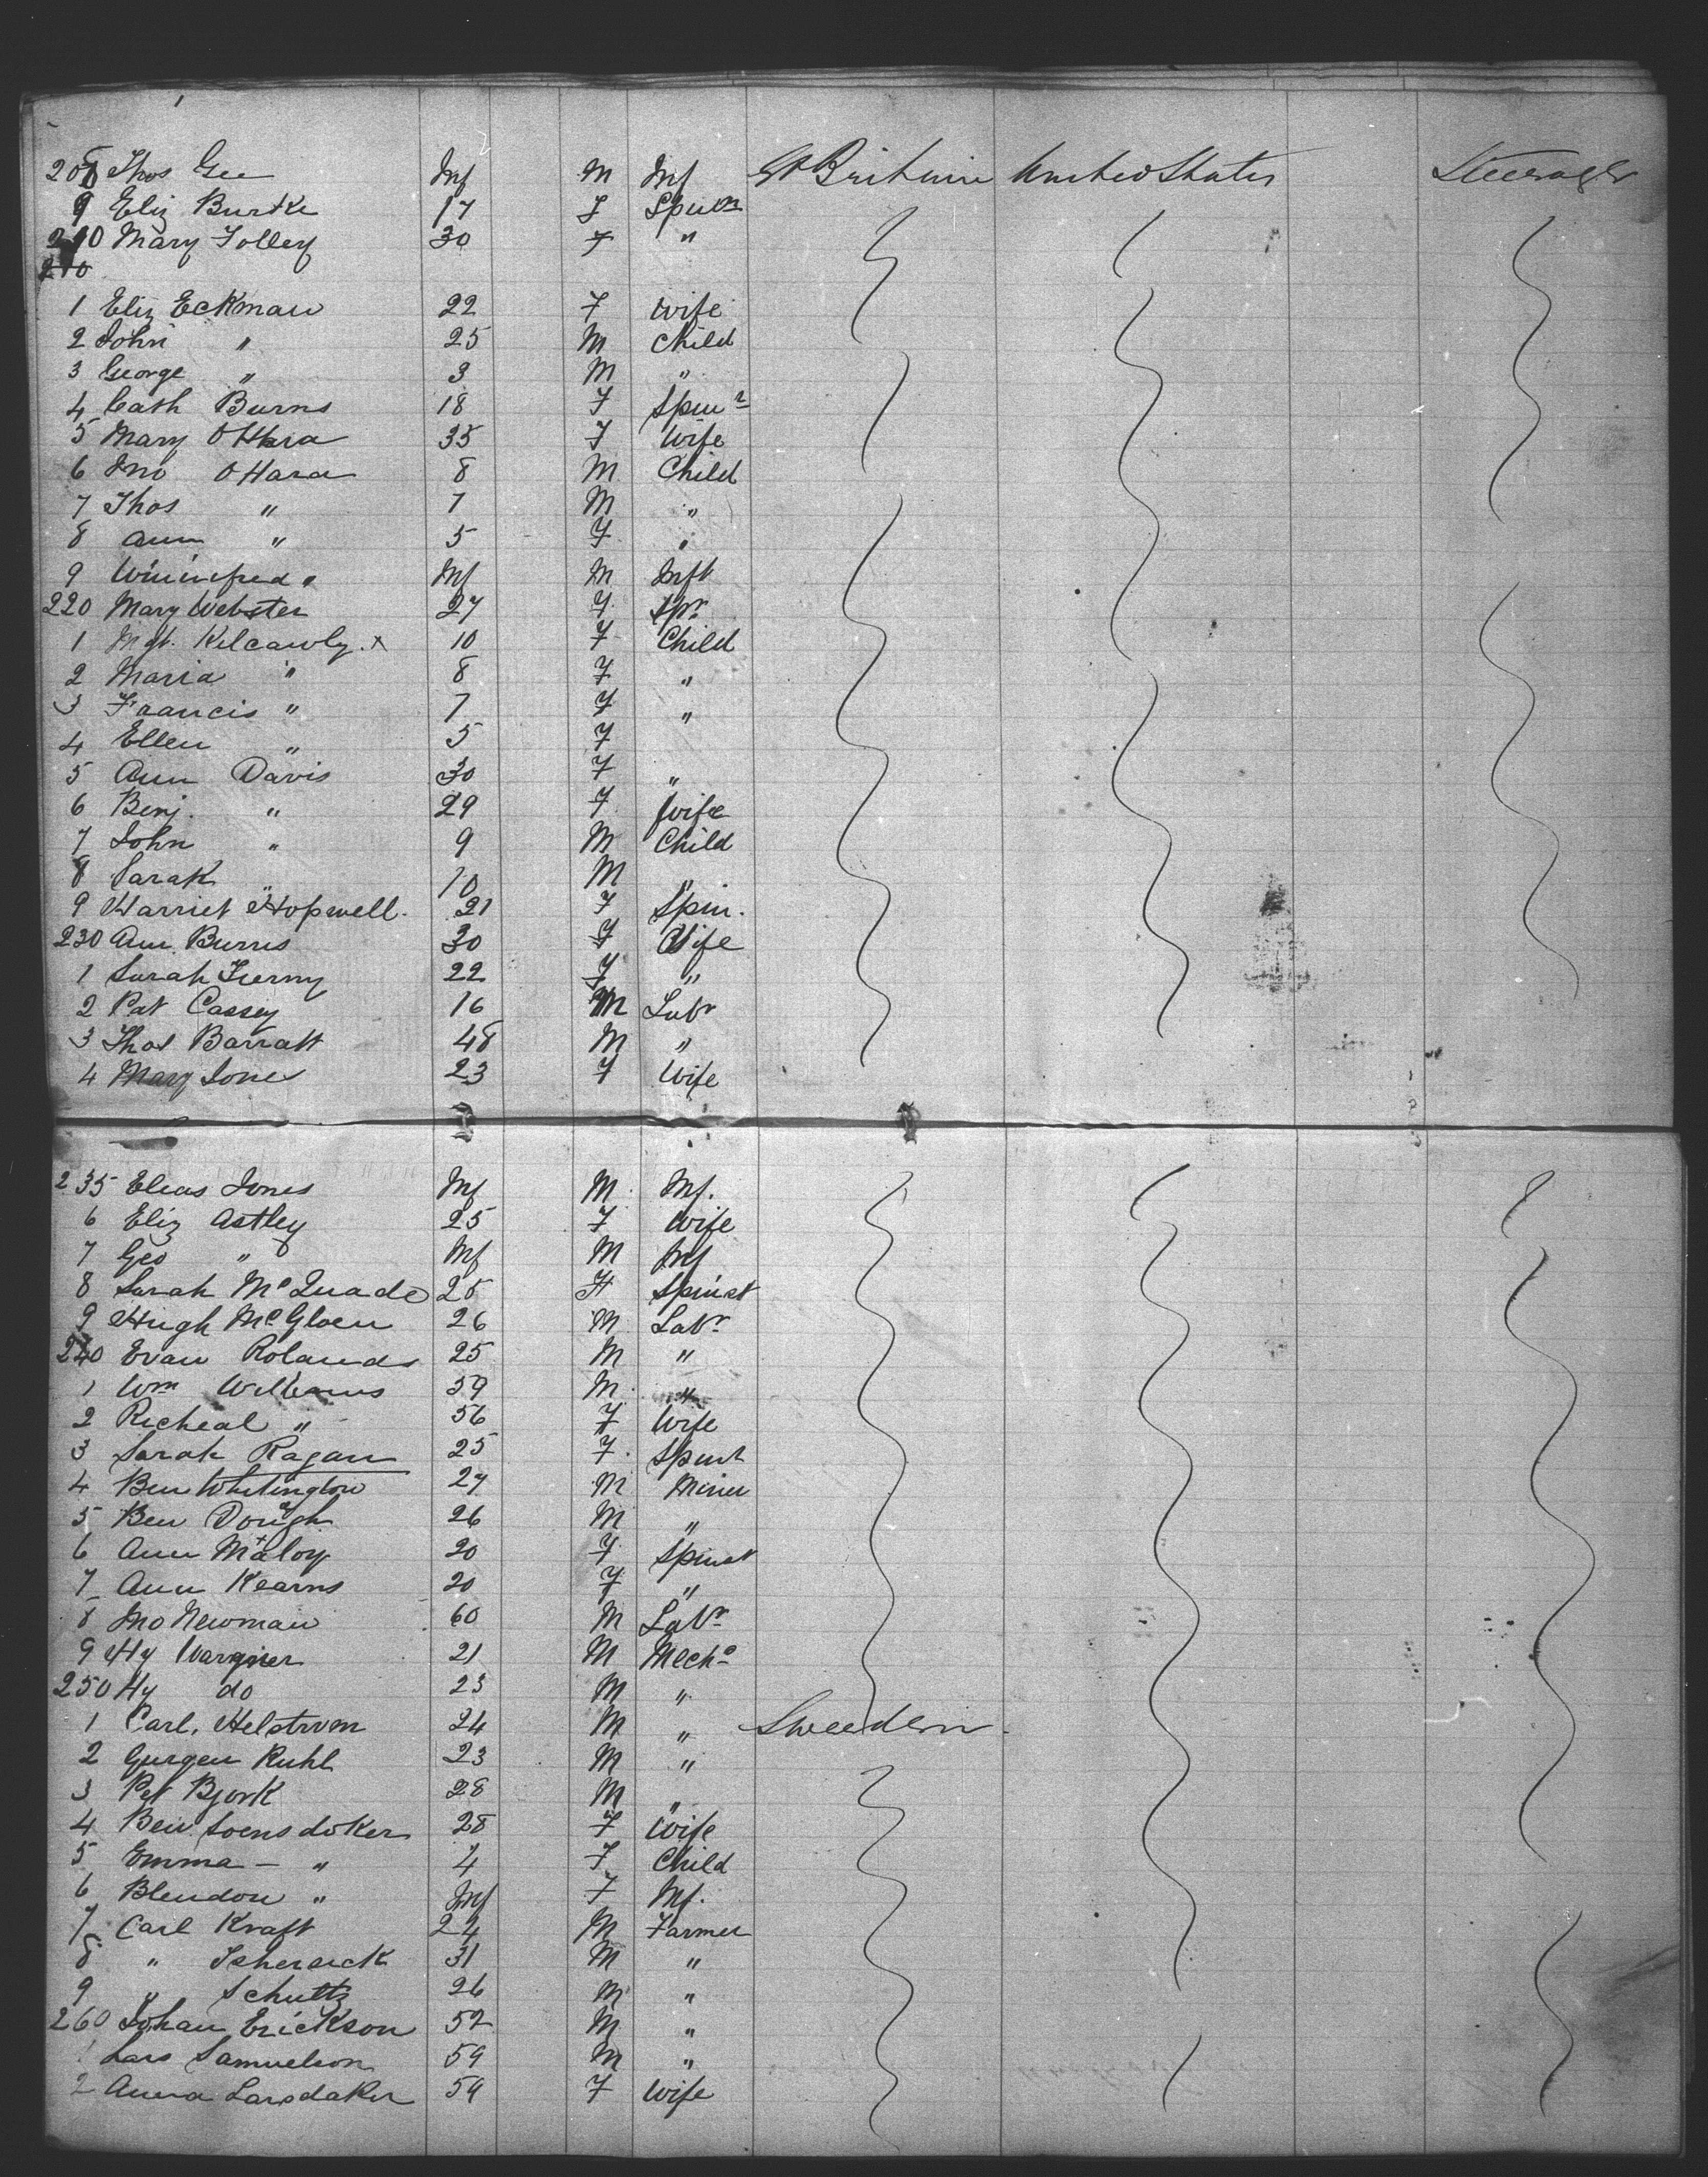 208 Thos Gee Inf M Inf Gt Britain United States Steerage
9 Eliz Burke 17 F Spinr
210 Mary Folley 30 F "
210
1 Eliz Eckman 22 F Wife
2 John " 25 M Child
3 George " 3 M "
4 Cath Burns 18 F Spinr
5 Mary O'Hara 35 F Wife
6 Jno O Hara 8 M Child
7 Thos " 7 M "
8 Ann " 5 F "
9 Winnifred " Inf M Inft
220 Mary Webster 27 F Spr
1 Mgt. Kilcawly. x 10 F Child
2 Maria " 8 F "
3 Francis " 7 F "
4 Ellen " 5 F
5 Ann Davis 30 F "
6 Benj. " 29 F Wife
7 John " 9 M Child
8 Sarah " 10 M "
9 Harriet Hopwell. 21 F Spin.
230 Ann Burns 30 F Wife
1 Sarah 22 F "
2 Pat Cassey 16 M Labr
3 Thos Barratt 48 M "
4 Mary Jones 23 F Wife
235 Elias Jones Inf M Inf.
6 Eliz Astley 25 F Wife
7 Geo " Inf M Inf
8 Sarah McQuade 25 F Spinst
9 Hugh McGloen 26 M Labr
240 Evan Rolands 25 M "
1 Wm Williams 59 M "
2 Richeal " 56 F Wife
3 Sarah Ragan 25 F Spinst
4 Ben Whitington 27 M Miner
5 Ben Dough 26 M "
6 Ann Maloy 20 F Spinst
7 Ann Kearns 20 F "
8 Jno Newman 60 M Labr
9 Hy Wargner 21 M Mechc
250 Hy do 23 M "
1 Carl. Helstrom 24 M " Sweeden
2 Gurgen Ruhl 23 M "
3 Pet Bjork 28 M "
4 Ben Soensdoker 28 F Wife
5 Emma - " 4 F Child
6 Blendon " Inf F Inf.
7 Carl Kraft 24 M Farmer
8 " 31 M "
9 " Schultz 26 M "
260 Johan Erickson 52 M "
1 Lars Samuelson 59 M "
2 Anna Larsdaker 59 F Wife